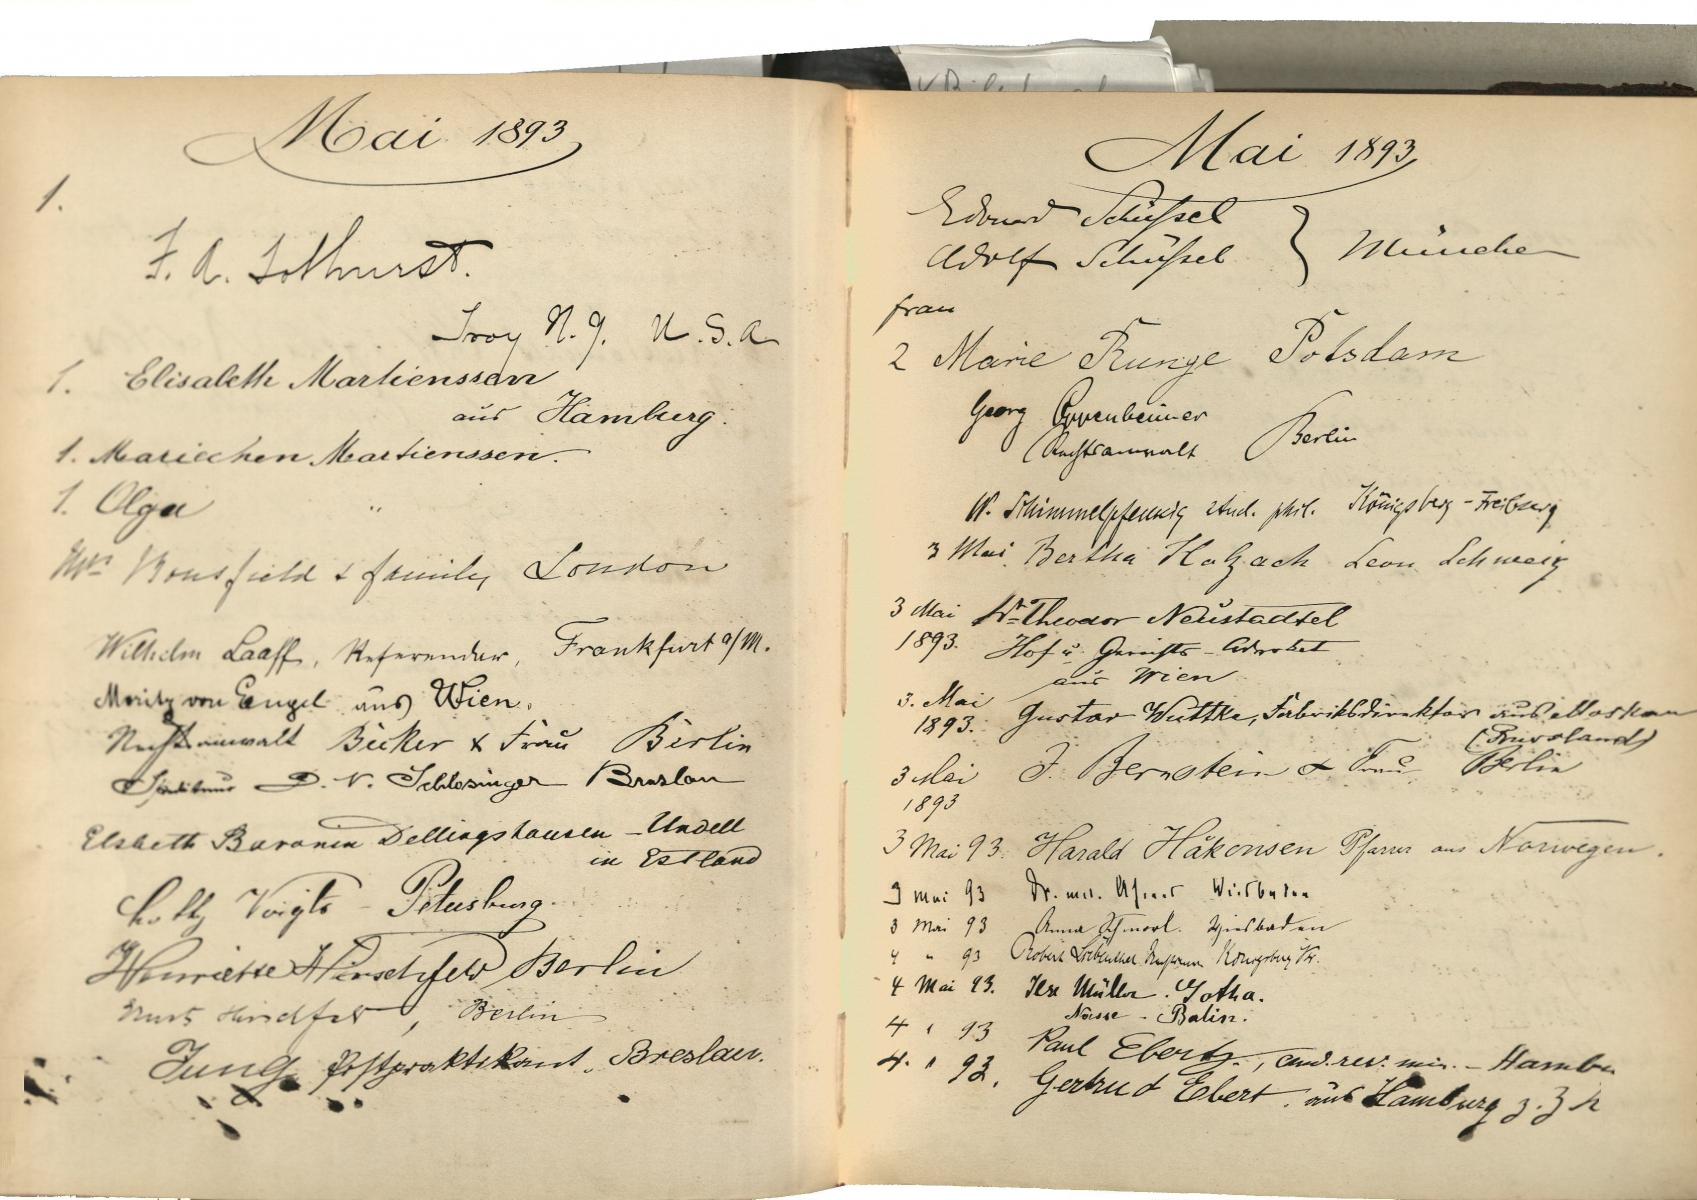 Mai 1893
1.
F. A.
Troy N.Y. U.S.A
1. Elisabeth Martienssen
aus Hamburg.
1. Mariechen Martienssen.
1. Olga "
Mrs Bousfield & family London
Wilhelm Laaff, Referendar, Frankfurt a/M.
Moritz von Engel aus Wien.
Rechtsanwalt Becker & Frau Berlin
D. N. Schlesinger Breslau
Elsbeth Baronin Dellingshausen - Undell
in Estland
Lotty Voigts - Petersburg.
Henriette Hirschfeld Berlin
Hirschfeld, Berlin
Jung Postpraktikant. Breslau.
Mai 1893
Eduard Schüssel
Adolf Schüssel } München
frau
2 Marie Runge Potsdam
Georg Oppenheimer
Rechtsanwalt Berlin
W. Schimmelpfennig stud. phil. Königsberg - Freiburg
3 Mai. Bertha Holzach Schweiz
3 Mai Dr. Theodor Neustadtel
1893. Hof u. Gerichts-Advokat
aus Wien
3. Mai Gustav Wuttke, Fabriksdirektor aus Moskau
1893. (Russland)
3 Mai J. Bernstein & Frau Berlin
1893
3 Mai 93. Harald Håkonsen Pfarrer aus Norwegen.
3 Mai 93 Dr. med. Wiesbaden
3 Mai 93 Anna Wiesbaden
4 " 93 Robert Königsberg Pr.
4 Mai 93. Ilse Müller. Gotha.
Berlin.
4 " 93 Paul Ebert, cand. rev. min. - Hambu
4. " 93. Gertrud Ebert. aus Hamburg z. Z